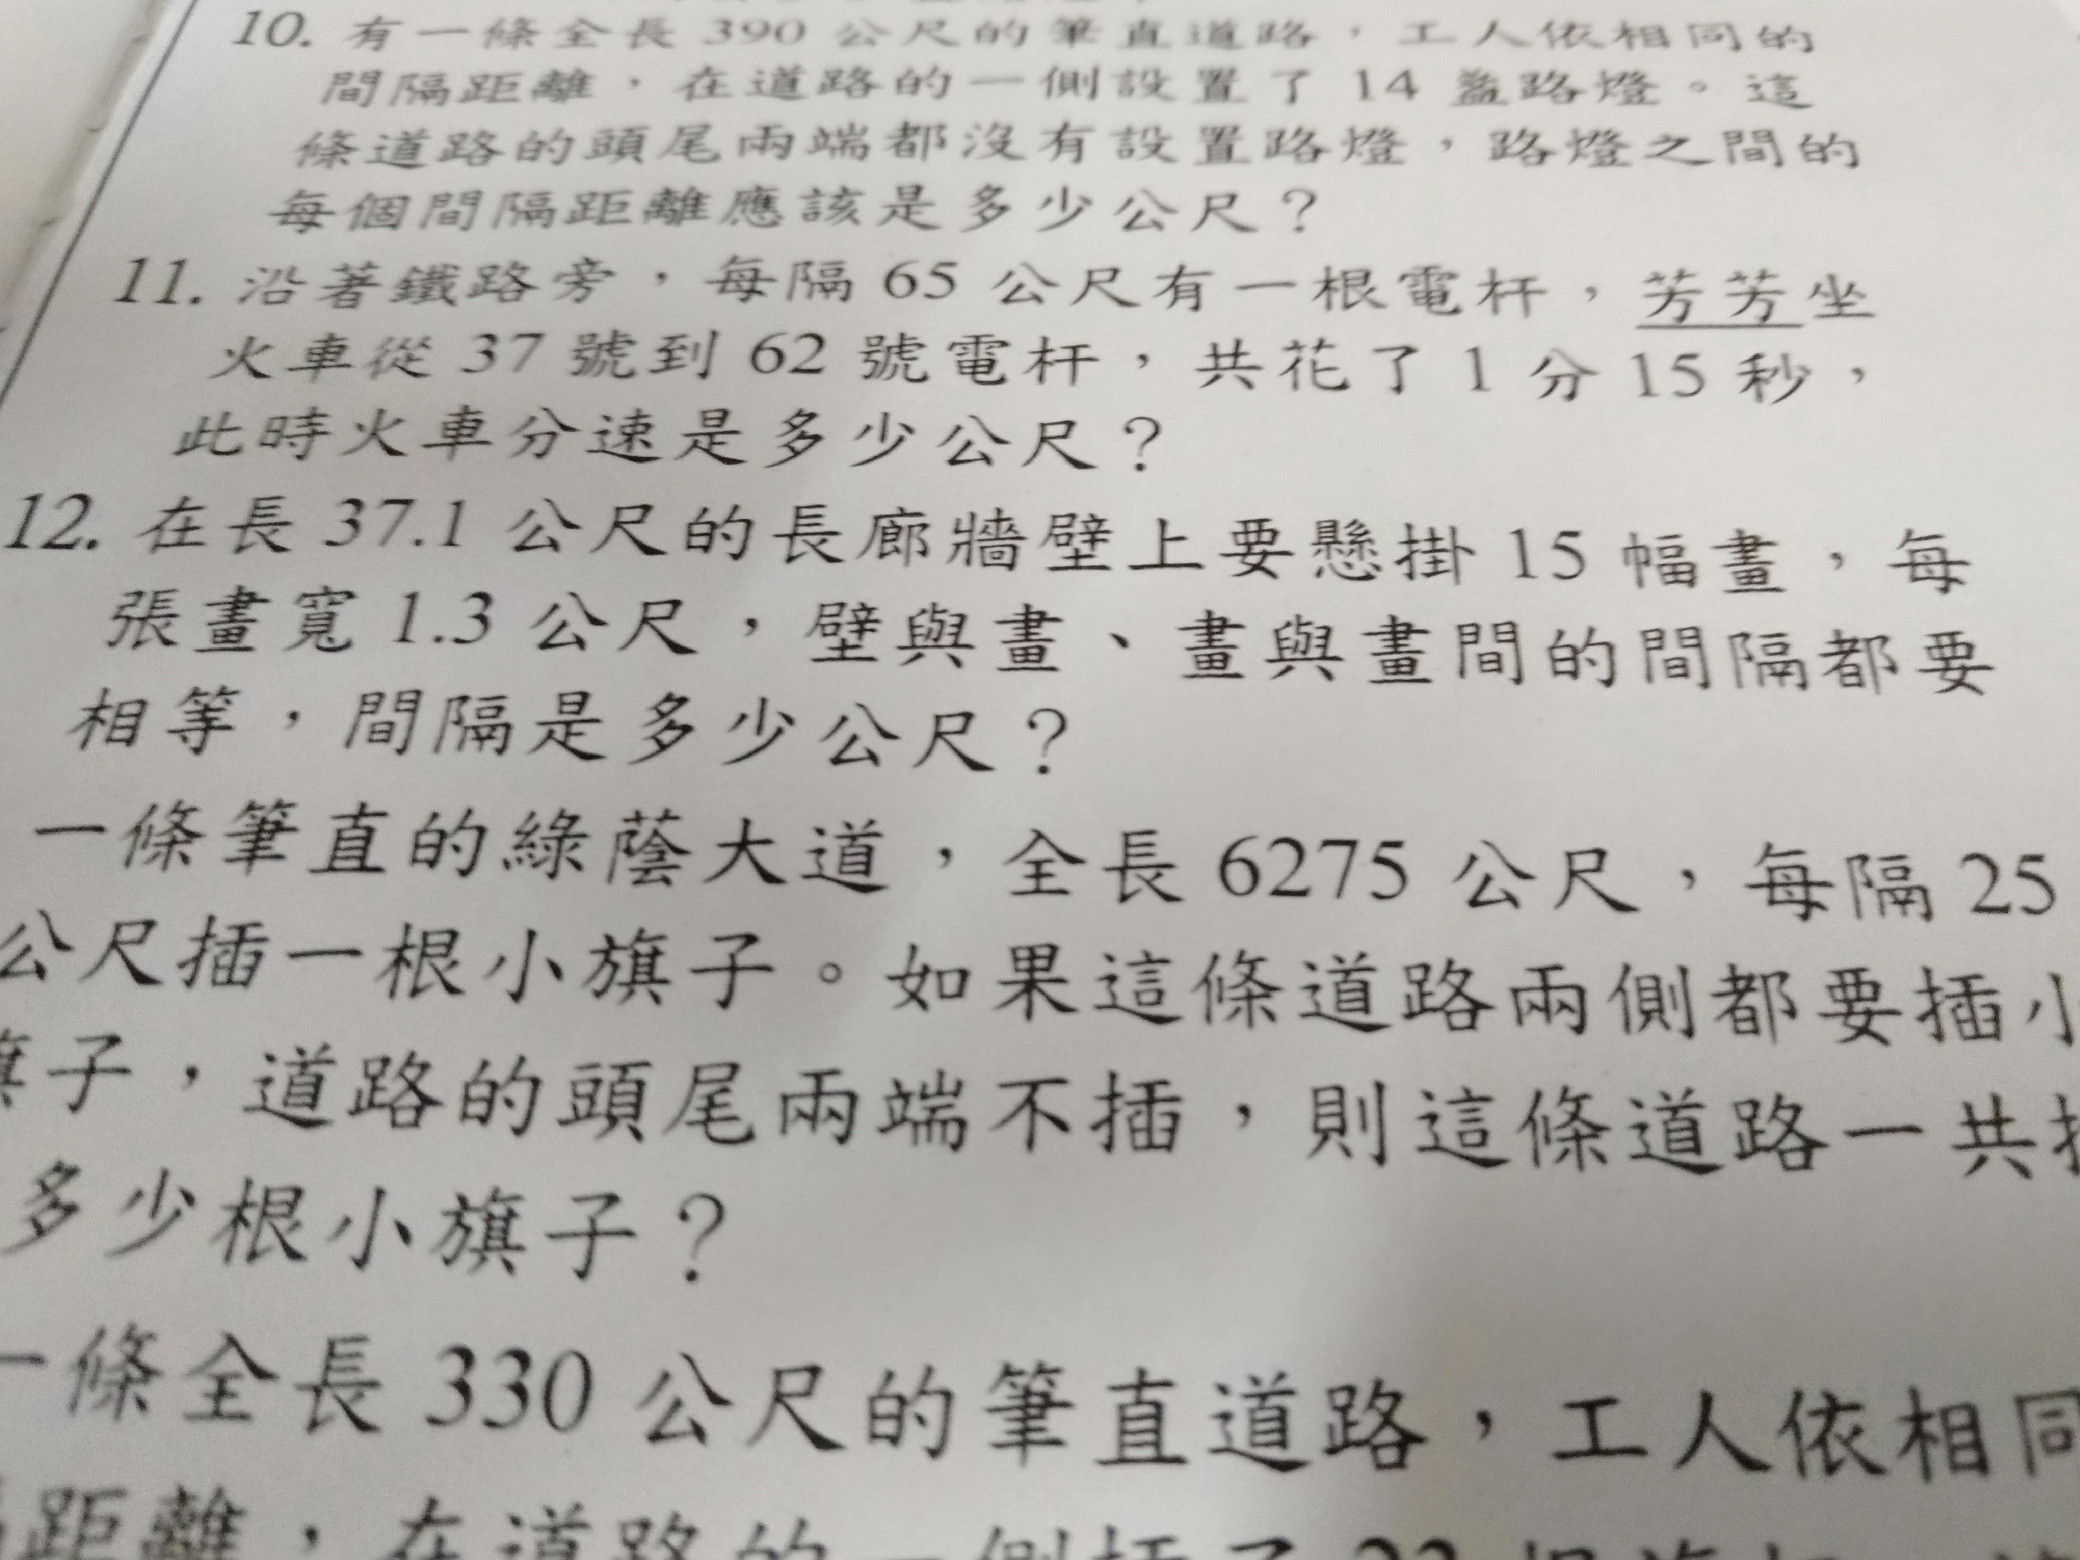 10. 有一條全長 390 公尺的筆直道路，工人依相同的
間隔距離，在道路的一側設置了 14 盞路燈。這
條道路的頭尾兩端都沒有設置路燈，路燈之間的
每個間隔距離應該是多少公尺？
11. 沿著鐵路旁，每隔 65 公尺有一根電杆，芳芳坐
火車從 37 號到 62 號電杆，共花了 1 分 15 秒，
此時火車分速是多少公尺？
12. 在長 37.1 公尺的長廊牆壁上要懸掛 15 幅畫，每
張畫寬 1.3 公尺，壁與畫、畫與畫間的間隔都要
相等，間隔是多少公尺？
一條筆直的綠蔭大道，全長 6275 公尺，每隔 25
公尺插一根小旗子。如果這條道路兩側都要插小
旗子，道路的頭尾兩端不插，則這條道路一共
多少根小旗子？
一條全長 330 公尺的筆直道路，工人依相同
距離，在道路的一側插了